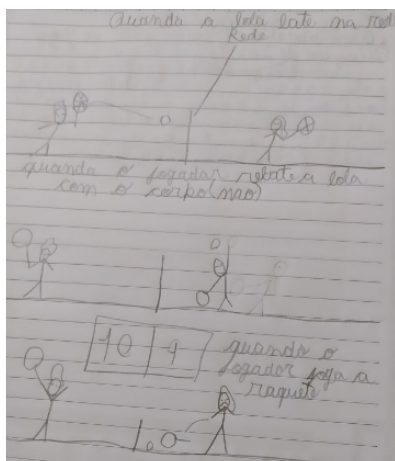 Quando a bola bate na red
Rede
quando o jogador rebate a bola
com o corpo (mao)
10 9
quando o
jogador joga a
raquete